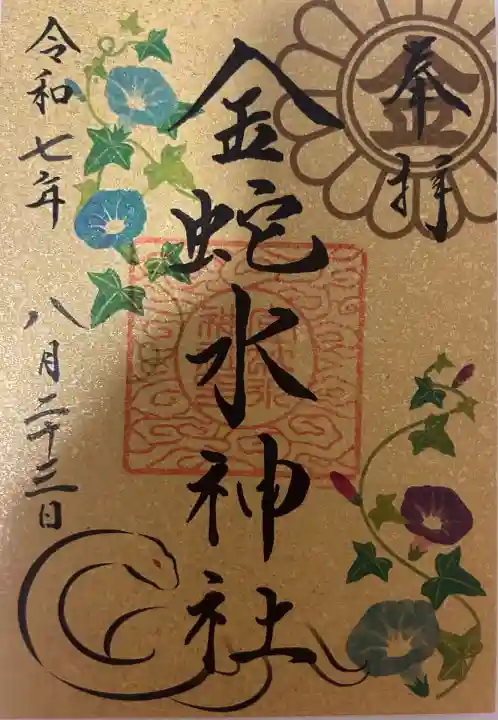 奉拝
金
金蛇水神社
令和七年
八月二十三日